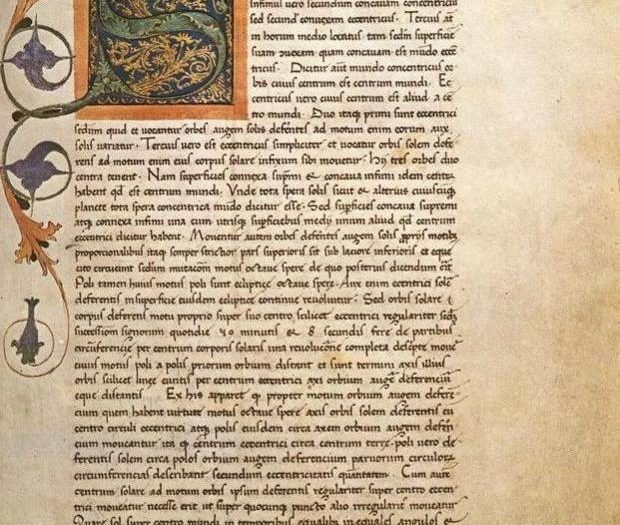 infimus vero secundum concavam concentricus
sed secund convexam eccentricus. Tercius at
in horum medio locatus tam sedm superficie
suam convexam quam concavam est mūdo ecce
tricus. Dicitur aūt mundo concentricus or
bis cuius centrum est centrum mundi. Ec
centricus vero cuius centrum est aliud a cē
tro mundi. Duo itaq primi sunt eccentrici
sedm quid et vocantur orbes augem solis deferētes ad motum enim eorum aux
solis variatur. Tercius vero est eccentricus simpliciter et vocatur orbis solem defe
rens ad motum enim eius corpus solare infixum sibi movetur. Hij tres orbes duo
centra tenent. Nam superficies connexa supmi & concava infimi idem centrū
habent qd est centrum mundi. Vnde tota spera solis sicut & alterius cuiuscūq
planete tota spera concentrica mūdo dicitur esse. Sed supficies concava supremi
atq connexa infimi una cum utrisq supficiebus medij unum aliud qd centrum
eccentrici dicitur habent. Moventur autem orbes deferētes augem solis motibȝ
proportionalibus itaq semper strictior pars superioris sit sub latiore inferioris et eque
cito circueunt sedum mutacōm motus octave spere de quo posterius dicendum erit
Poli tamen huius motus poli sunt eclyptice octave spere. Aux enim ecentrici sole
deferentis in superficie eiusdem ecliptice continue revoluitur. Sed orbis solare
corpus deferens motu proprio super suo centro scilicet eccentrici regulariter sedȝ
successiōm signorum quotidie 59 minutis & 8 secundis fere de partibus
circūferencie per centrum corporis solaris una revolucōne completa descipte move
cuius motus poli a polis priorum orbium distant et sunt termini axis illius
orbis scilicet linee euntis per centrum eccentrici axi orbium augē deferencium
eque distantis Ex his apparet q propter motum orbium augem defere
cium quem habent virtute motus octave spere axis orbis solem deferentis cū
centro circuli eccentrici atq polis eiusdem circa axem orbium augem defeȓ
cium moveantur ita q centrum eccentrici circa centrum terre poli vero de
ferentis solem circa polos orbium augem deferencium parvorum circulorū
circumferencias describant secundum eccentricitatis quantatem. Cum aute
centrum solare ad motum orbis ipsum deferentis regulariter super centro eccen
trici moveatur necesse erit ut super quocunq puncto alio irregularit moveatur
Quare sol super centro mundi in temporibus equalibȝ inequales angulos &